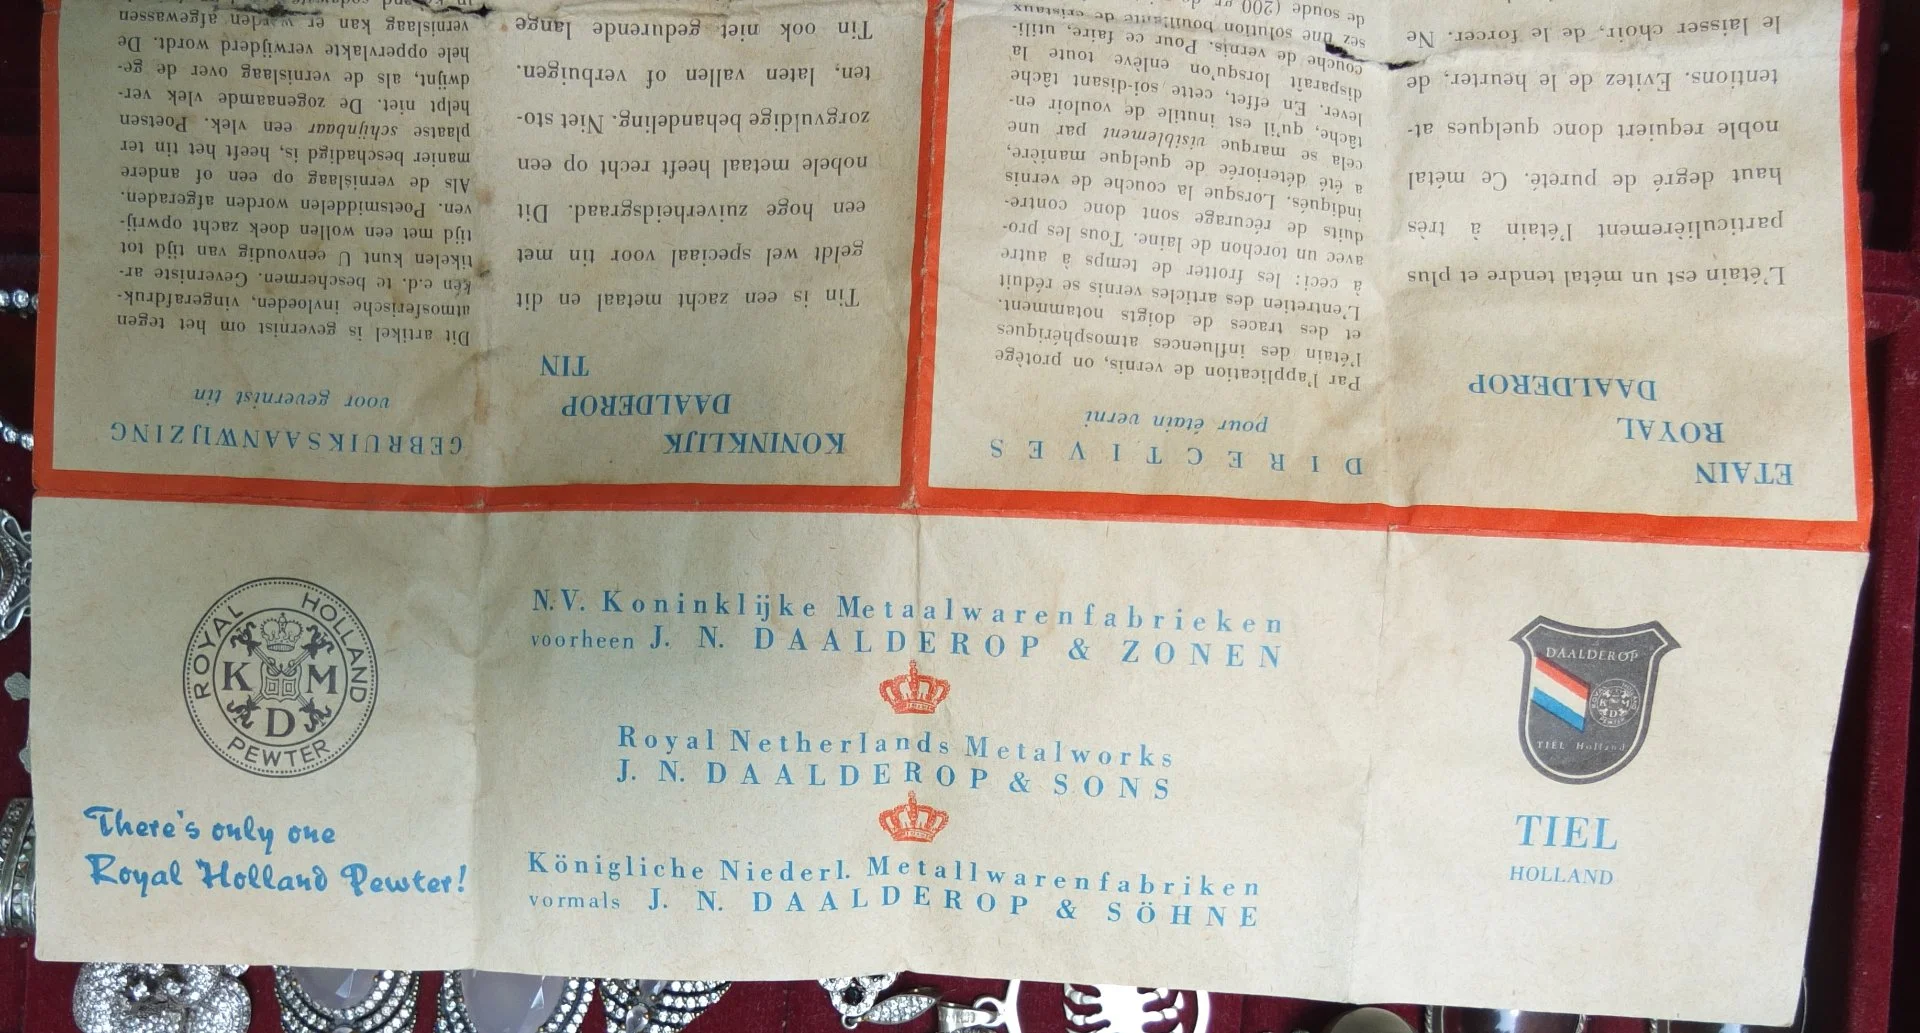 ROYAL HOLLAND PEWTER
K M D
There's only one
Royal Holland Pewter!
N.V. Koninklijke Metaalwarenfabrieken
voorheen J. N. DAALDEROP & ZONEN
Royal Netherlands Metalworks
J. N. DAALDEROP & SONS
Königliche Niederl. Metallwarenfabriken
vormals J. N. DAALDEROP & SÖHNE
DAALDEROP
K M D
TIEL Holland
TIEL
HOLLAND
ETAIN
ROYAL
DAALDEROP
L'étain est un métal tendre et plus
particulièrement l'étain à très
haut degré de pureté. Ce métal
noble requiert donc quelques at-
tentions. Evitez de le heurter, de
le laisser choir, de le forcer. Ne
DIRECTIVES
pour étain verni
Par l'application de vernis, on protège
l'étain des influences atmosphériques
et des traces de doigts notamment.
L'entretien des articles vernis se réduit
à ceci: les frotter de temps à autre
avec un torchon de laine. Tous les pro-
duits de récurage sont donc contre-
indiqués. Lorsque la couche de vernis
a été détériorée de quelque manière,
cela se marque visiblement par une
tâche, qu'il est inutile de vouloir en-
lever. En effet, cette soi-disant tâche
disparaît lorsqu'on enlève toute la
couche de vernis. Pour ce faire, utili-
sez une solution bouillante de cristaux
de soude (200 gr
KONINKLIJK
DAALDEROP
TIN
Tin is een zacht metaal en dit
geldt wel speciaal voor tin met
een hoge zuiverheidsgraad. Dit
nobele metaal heeft recht op een
zorgvuldige behandeling. Niet sto-
ten, laten vallen of verbuigen.
Tin ook niet gedurende lange
GEBRUIKSAANWIJZING
voor gevernist tin
Dit artikel is gevernist om het tegen
atmosferische invloeden, vingerafdruk-
kén e.d. te beschermen. Geverniste ar-
tikelen kunt U eenvoudig van tijd tot
tijd met een wollen doek zacht opwrij-
ven. Poetsmiddelen worden afgeraden.
Als de vernislaag op een of andere
manier beschadigd is, heeft het tin ter
plaatse schijnbaar een vlek. Poetsen
helpt niet. De zogenaamde vlek ver-
dwijnt, als de vernislaag over de ge-
hele oppervlakte verwijderd wordt. De
vernislaag kan er worden afgewassen